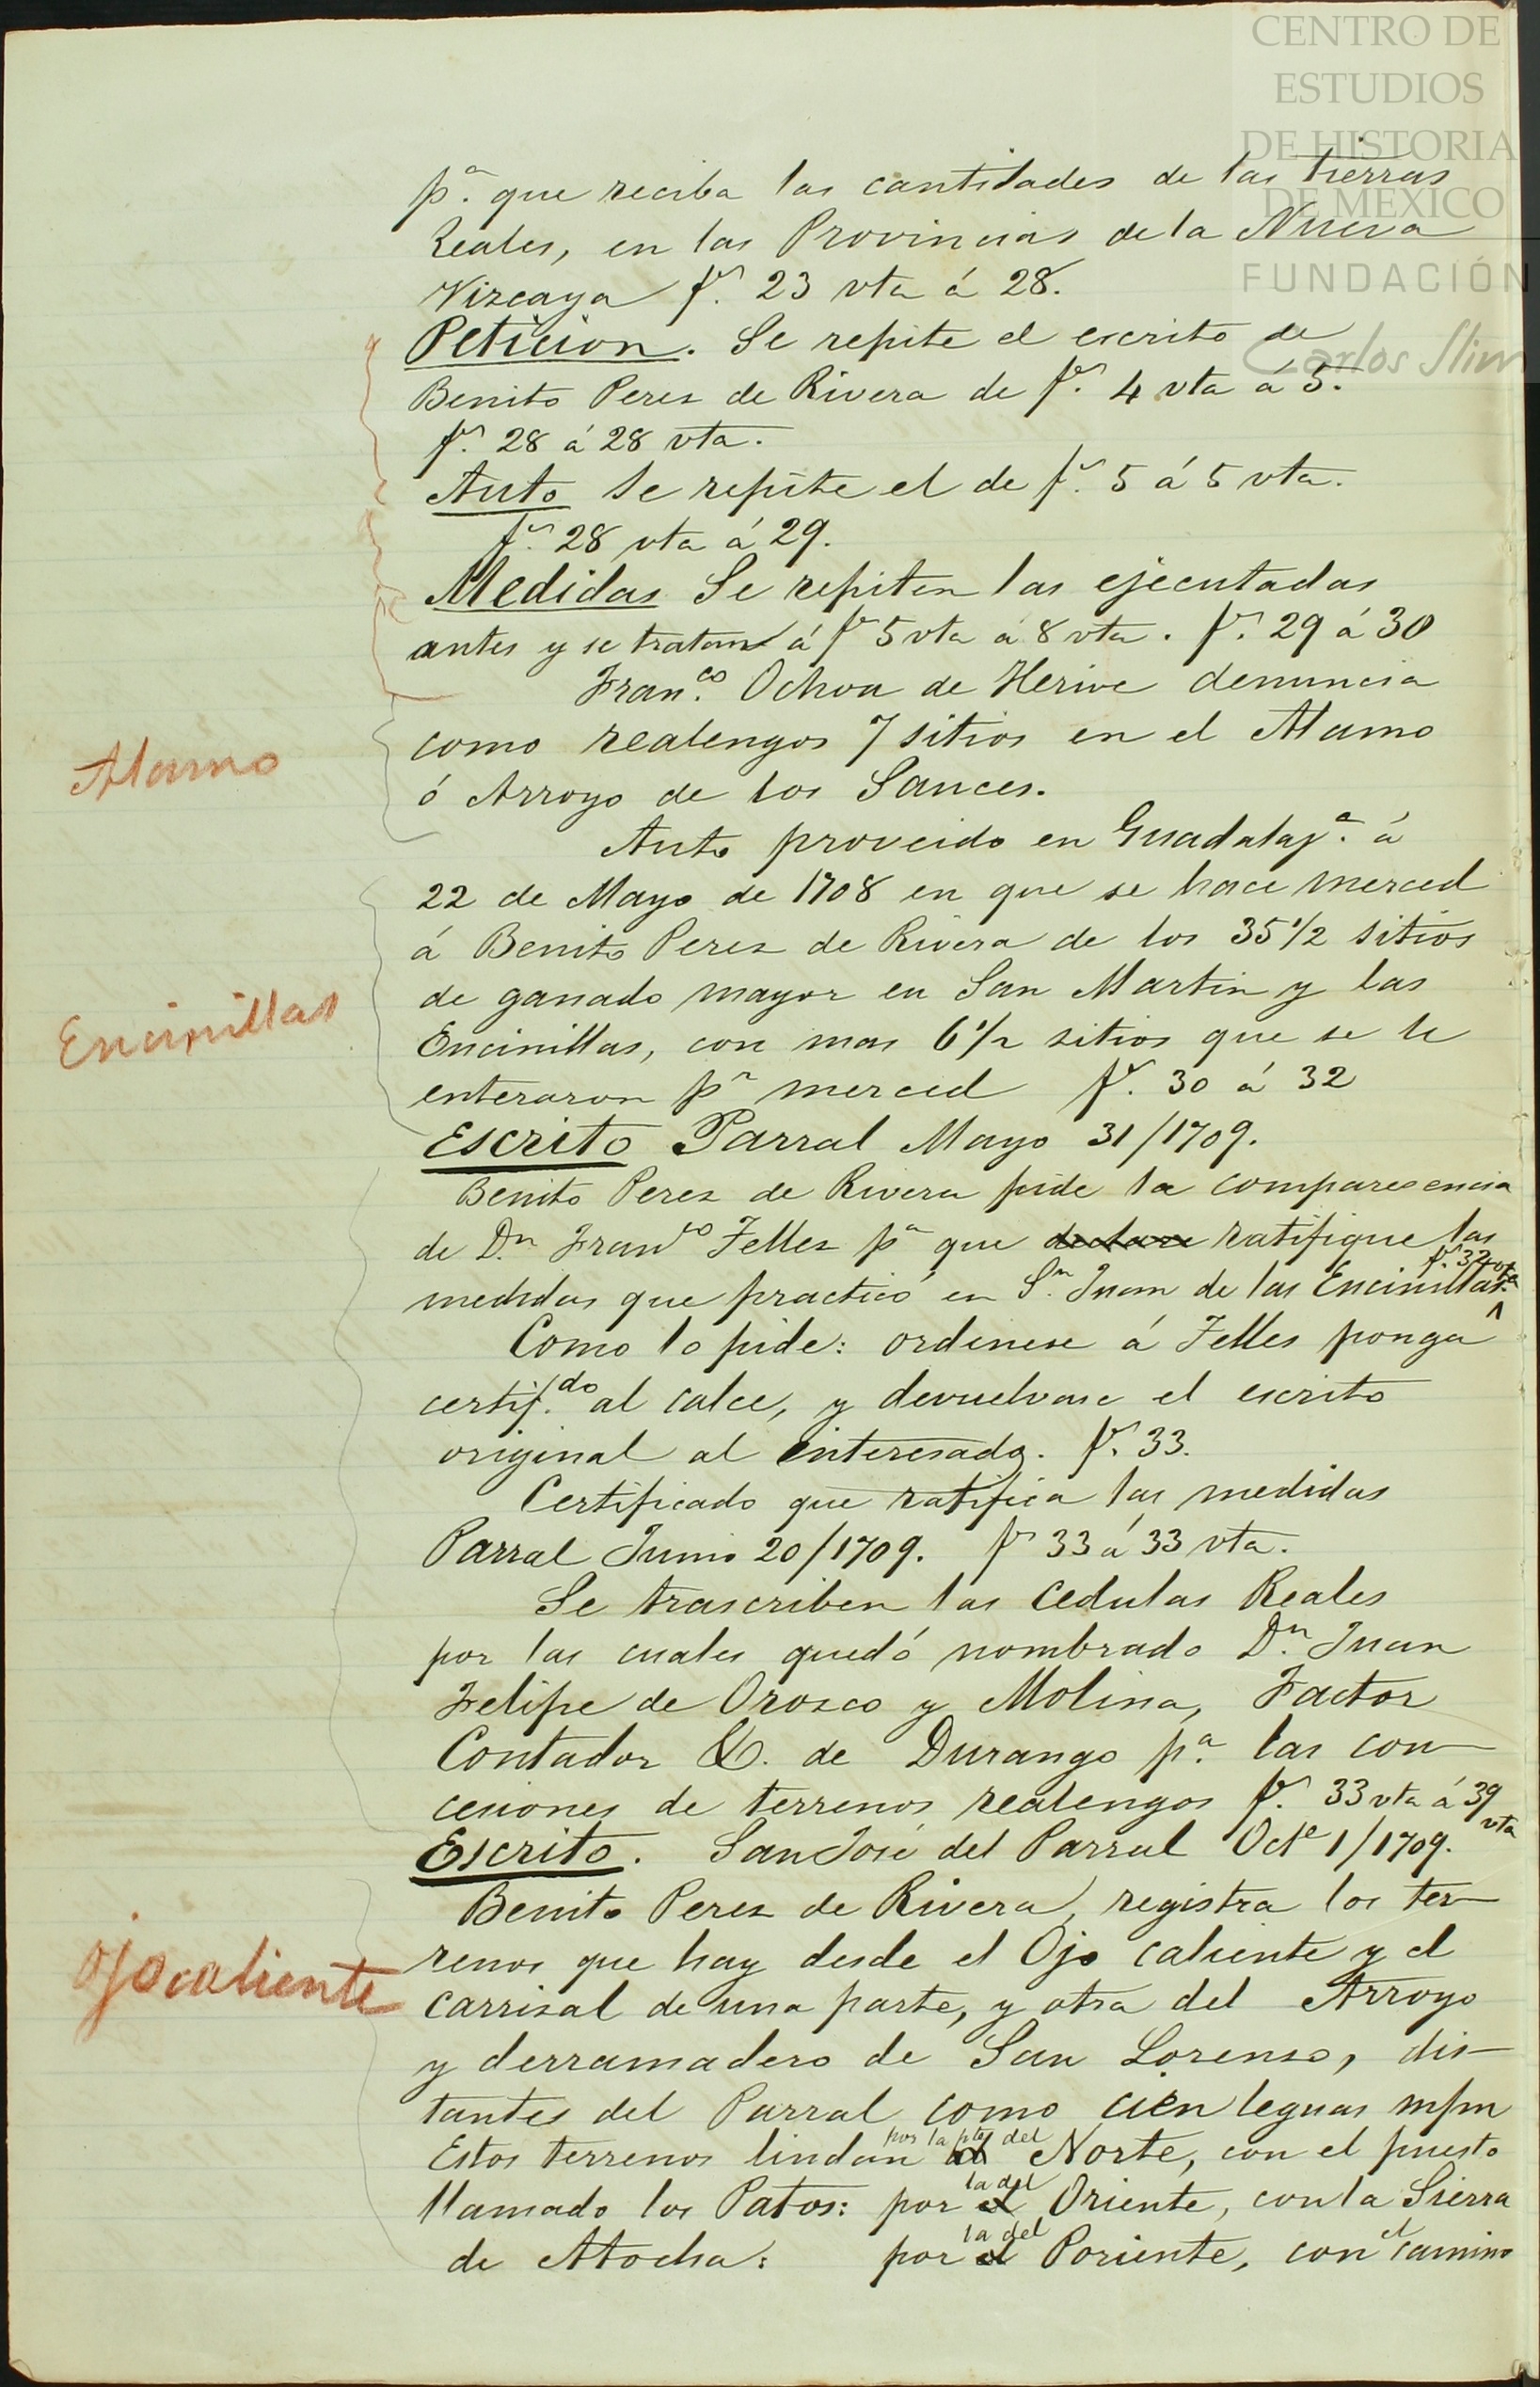 CENTRO DE
ESTUDIOS
DE HISTORIA
DE MEXICO
FUNDACIÓN
Carlos Slim
pª. que reciba las cantidades de las tierras
Reales, en las Provincias de la Nueva
Vizcaya fs. 23 vta á 28.
Peticion. Se repite el escrito de
Benito Perez de Rivera de fs. 4 vta á 5.
fs. 28 á 28 vta.
Auto Se repite el de fs. 5 á 5 vta.
fs. 28 vta á 29.
Medidas Se repiten las ejecutadas
antes y se tratan á fs 5 vta á 8 vta. fs. 29 á 30
Fran.co Ochoa de denuncia
como realengos 7 sitios en el Alamo
ó Arroyo de los Sauces.
Alamo
Auto proveido en Guadalajª. á
22 de Mayo de 1708 en que se hace merced
á Benito Perez de Rivera de los 35 1/2 sitios
de ganado mayor en San Martin y las
Encinillas, con mas 6 1/2 sitios que se le
enteraron pr merced fs. 30 á 32
Encinillas
Escrito Parral Mayo 31/1709.
Benito Perez de Rivera pide la comparecencia
de Dn Franco Telles pª que declare ratifique las
medidas que practicó en Sn. Juan de las Encinillas. fs. 32 vta
Como lo pide: ordenese á Telles ponga
certif.do al calce, y devuelvase el escrito
original al interesado. fs. 33.
Certificado que ratifica las medidas
Parral Junio 20/1709. fs 33 á 33 vta.
Se trascriben las Cedulas Reales
por las cuales quedó nombrado Dn. Juan
Felipe de Orozco y Molina, Factor
Contador &. de Durango pª. las con-
cesiones de terrenos realengos fs. 33 vta á 39 vta
Escrito. San José del Parral Oct.e 1/1709.
Benito Perez de Rivera, registra los ter-
renos que hay desde el Ojo caliente y el
Ojo caliente
carrisal de una parte, y otra del Arroyo
y derramadero de San Lorenso, dis-
tantes del Parral como cien leguas mpm
Estos terrenos lindan al por la pte del Norte, con el puesto
llamado los Patos: por el la del Oriente, con la Sierra
de Atocha: por el la del Poriente, con el camino